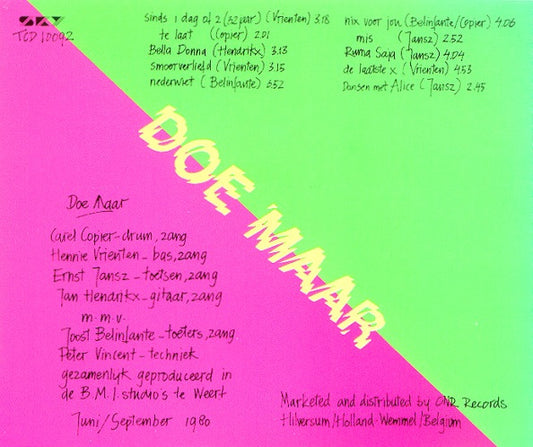 SKY
TCD 10092
sinds 1 dag of 2 (32 jaar) (Vrienten) 3.18
te laat (Copier) 2.01
Bella Donna (Hendrikx) 3.13
smoorverliefd (Vrienten) 3.15
nederwiet (Belinfante) 3.52
nix voor jou (Belinfante/Copier) 4.06
mis (Jansz) 2.52
Ruma Saja (Jansz) 4.04
de laatste x (Vrienten) 4.53
Dansen met Alice (Jansz) 2.45
DOE MAAR
Doe Maar
Carel Copier-drum, zang
Hennie Vrienten-bas, zang
Ernst Jansz-toetsen, zang
Jan Hendrikx-gitaar, zang
m.m.v.
Joost Belinfante-toeters, zang
Peter Vincent-techniek
gezamenlyk geproduceerd in
de B.M.I. studio's te Weert
Juni/September 1980
Marketed and distributed by CNR Records
Hilversum/Holland-Wemmel/Belgium